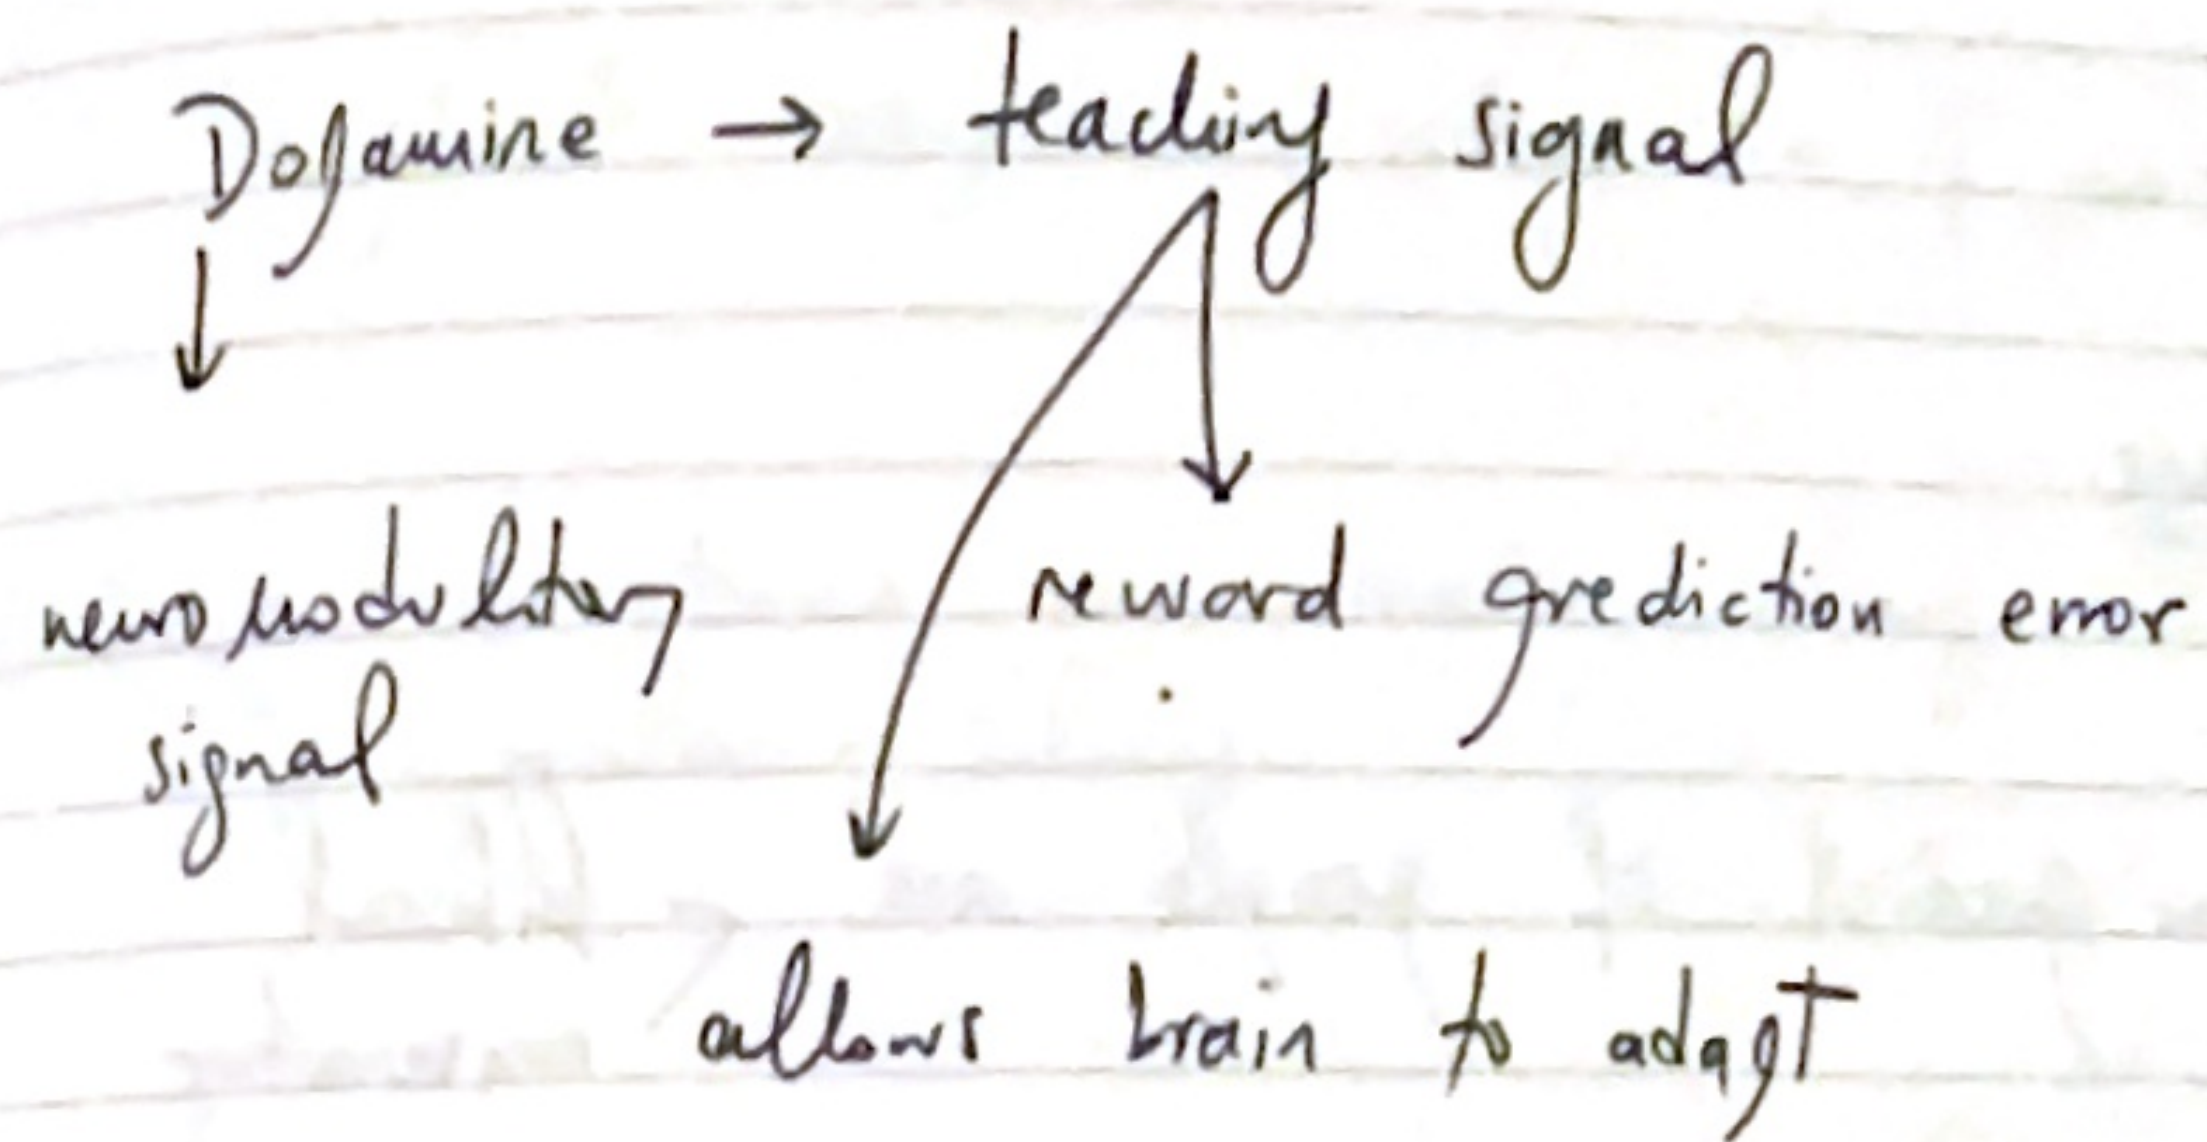 Dopamine → teaching signal
neuromodulatory reward prediction error
signal
allows brain to adapt